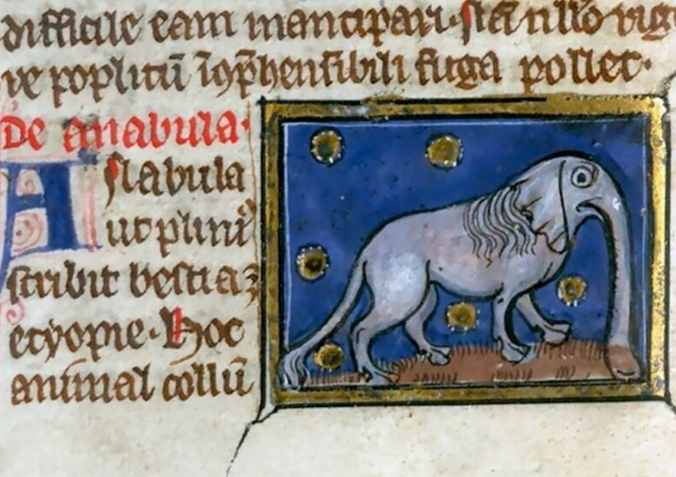 difficile eam mancipari. si tam̄ ullo vige
re poplitū īcōp̄hensibili fuga pollet.
De anabula.
Anabula
ut plini9
scribit bestia ē
etyopie. Hoc
animal collū